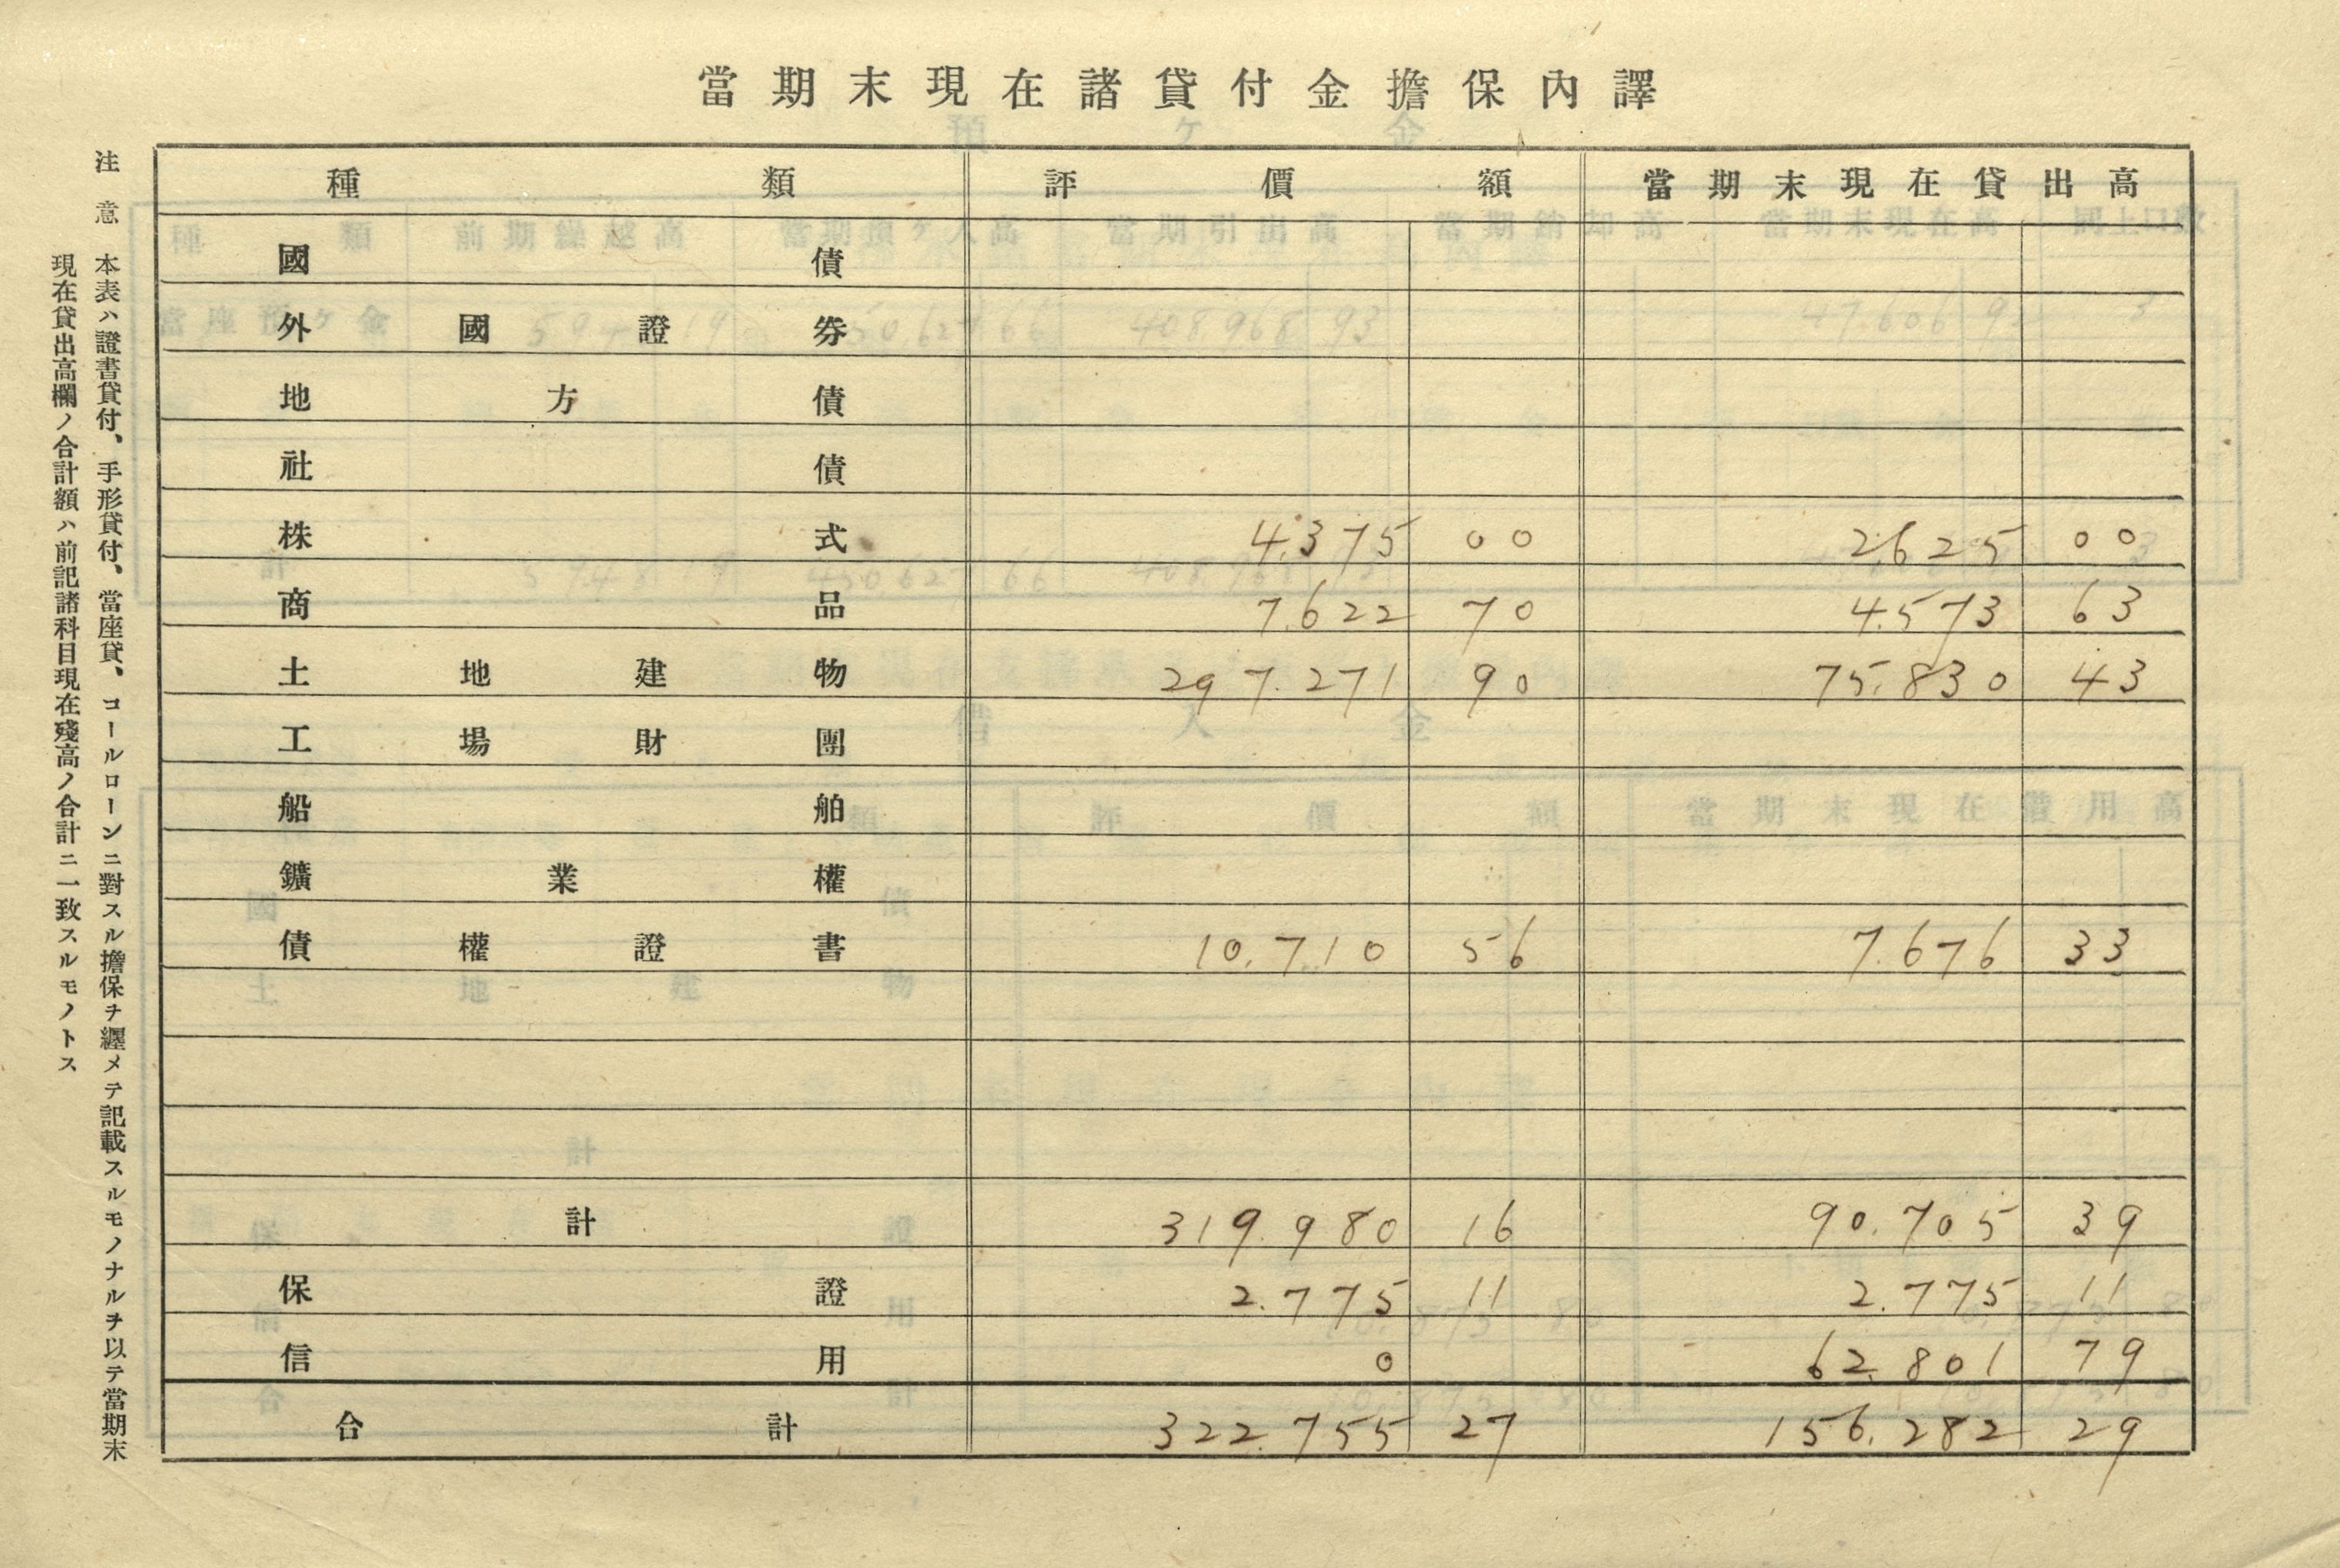 當期末現在諸貸付金擔保內譯
種類 評價額 當期末現在貸出高
國債
外國證券
地方債
社債
株式 4.375 00 2625 00
商品 7.622 70 4.573 63
土地建物 297.271 90 75.830 43
工場財團
船舶
鑛業權
債權證書 10.710 56 7.676 33
計 319.980 16 90.705 39
保證 2.775 11 2.775 11
信用 0 62.801 79
合計 322.755 27 156.282 29
注意 本表ハ證書貸付、手形貸付、當座貸、コールローンニ對スル擔保ヲ纒メテ記載スルモノナルヲ以テ當期末
現在貸出高欄ノ合計額ハ前記諸科目現在殘高ノ合計ニ一致スルモノトス